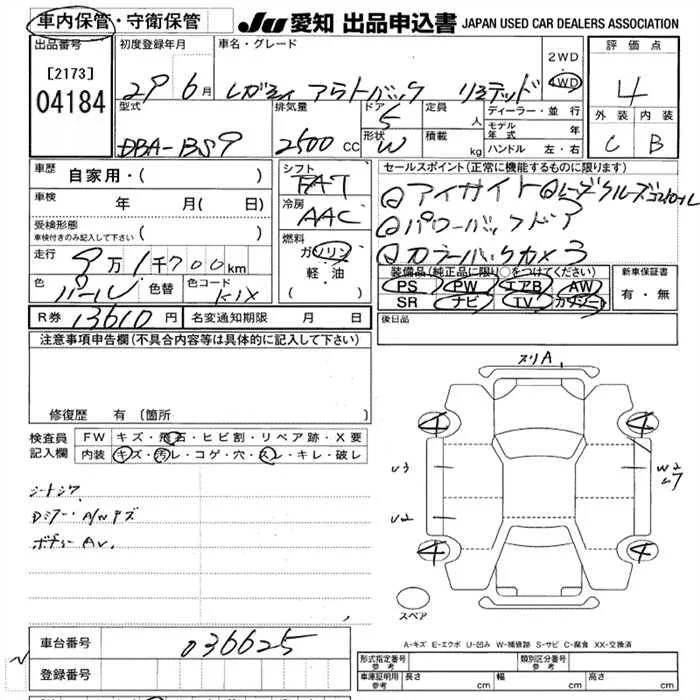 車内保管・守衛保管
JU 愛知 出品申込書 JAPAN USED CAR DEALERS ASSOCIATION
出品番号 初度登録年月 車名・グレード 2WD 評価点
[2173]
04184
29 6月 レガシィ アウトバック リミテッド 4WD 4
型式 排気量 ドア 定員 ディーラー・並行 外装 内装
5 人 モデル年式 年
DBA-BS9 2500 CC 形状 W 積載 kg ハンドル 左・右 C B
車歴 自家用・( ) シフト FAT セールスポイント(正常に機能するものに限ります)
車検 年 月(日) 冷房 AAC
受検形態
車検付きのみ記入して下さい ( )
燃料 ガソリン
軽・油
走行 9万1千700km
色 パール 色替 色コード K1X
◎アイサイト
◎パワーバックドア
◎カラーバックカメラ
装備品(純正品に限り○をつけてください) 新車保証書
PS PW エアB AW 有・無
SR ナビ TV カワシート
R券 13610円 名変通知期限 月 日 後日品
注意事項申告欄(不具合内容等は具体的に記入して下さい)
修復歴 有 (箇所
検査員 FW キズ・飛石・ヒビ割・リペア跡・X要
記入欄 内装 キズ・汚レ・コゲ・穴・スレ・キレ・破レ
シートシワ
ボディー AU.
ヌリA
4 4
U3 W2
U2
4 4
スペア
A-キズ E-エクボ U-凹み W-補修跡 S-サビ C-腐食 XX-交換済
車台番号 036625
登録番号
形式指定番号 参考 類別区分番号 参考
車庫証明用 参考 長さ cm 幅 cm 高さ cm